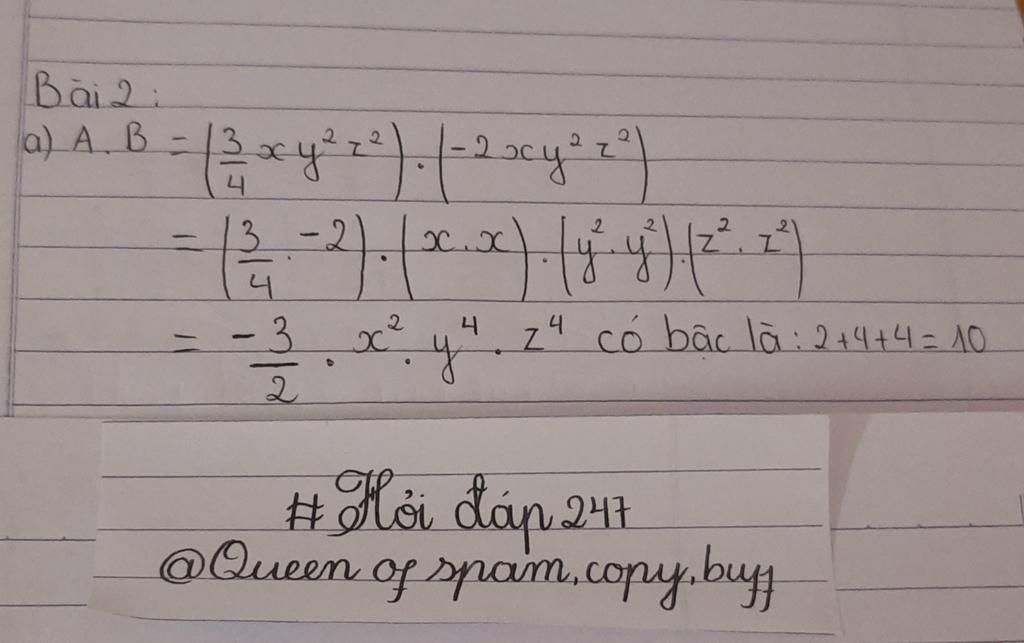 Bài 2:
a) A.B = (3/4 xy² z²) . (-2xy² z²)
= (3/4 . -2) . (x.x) . (y².y²).(z².z²)
= -3/2 . x² . y⁴ . z⁴ có bậc là: 2+4+4=10
#Hỏi đáp 247
@Queen of spam,copy,buff